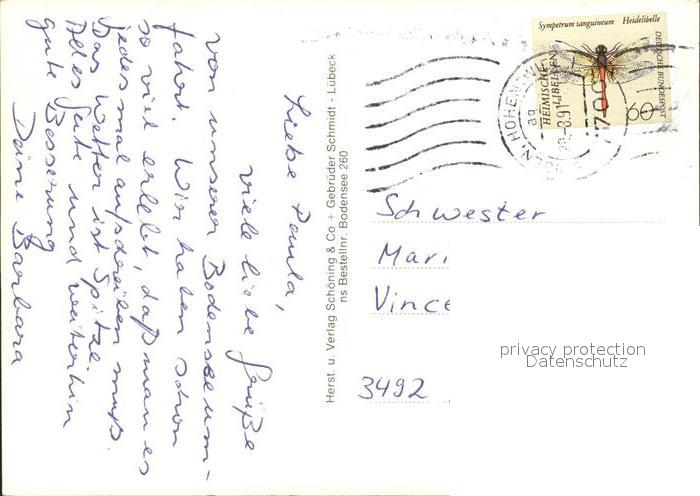 Liebe Paula,
viele liebe Grüße
von unserer Bodenseeum-
fahrt. Wir haben schon
so viel erlebt, daß man es
jedesmal aufschreiben muß.
Das Wetter ist Spitze.
Alles Gute und weiterhin
gute Besserung
Deine Barbara
Herst. u. Verlag Schöning & Co + Gebrüder Schmidt - Lübeck
ns Bestellnr. Bodensee 260
Sympetrum sanguineum Heidelibelle
HEIMISCHE
LIBELLEN
DEUTSCHE BUNDESPOST
60
Schwester
Mari
Vince
3492
privacy protection
Datenschutz